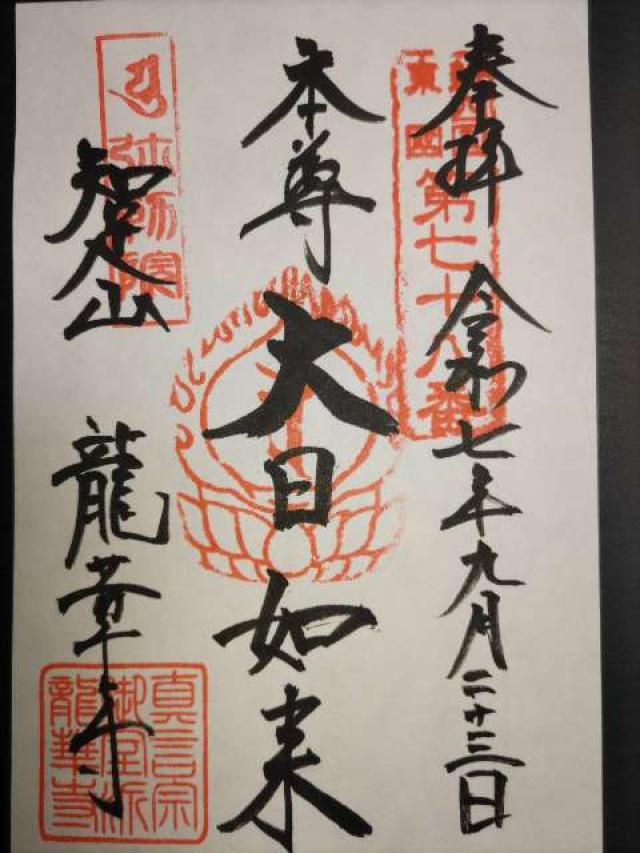 奉拝 令和七年九月二十三日
東國
第七十八番
本尊
大日如来
弥勒院
知足山
龍華寺
真言宗
御室派
龍華寺